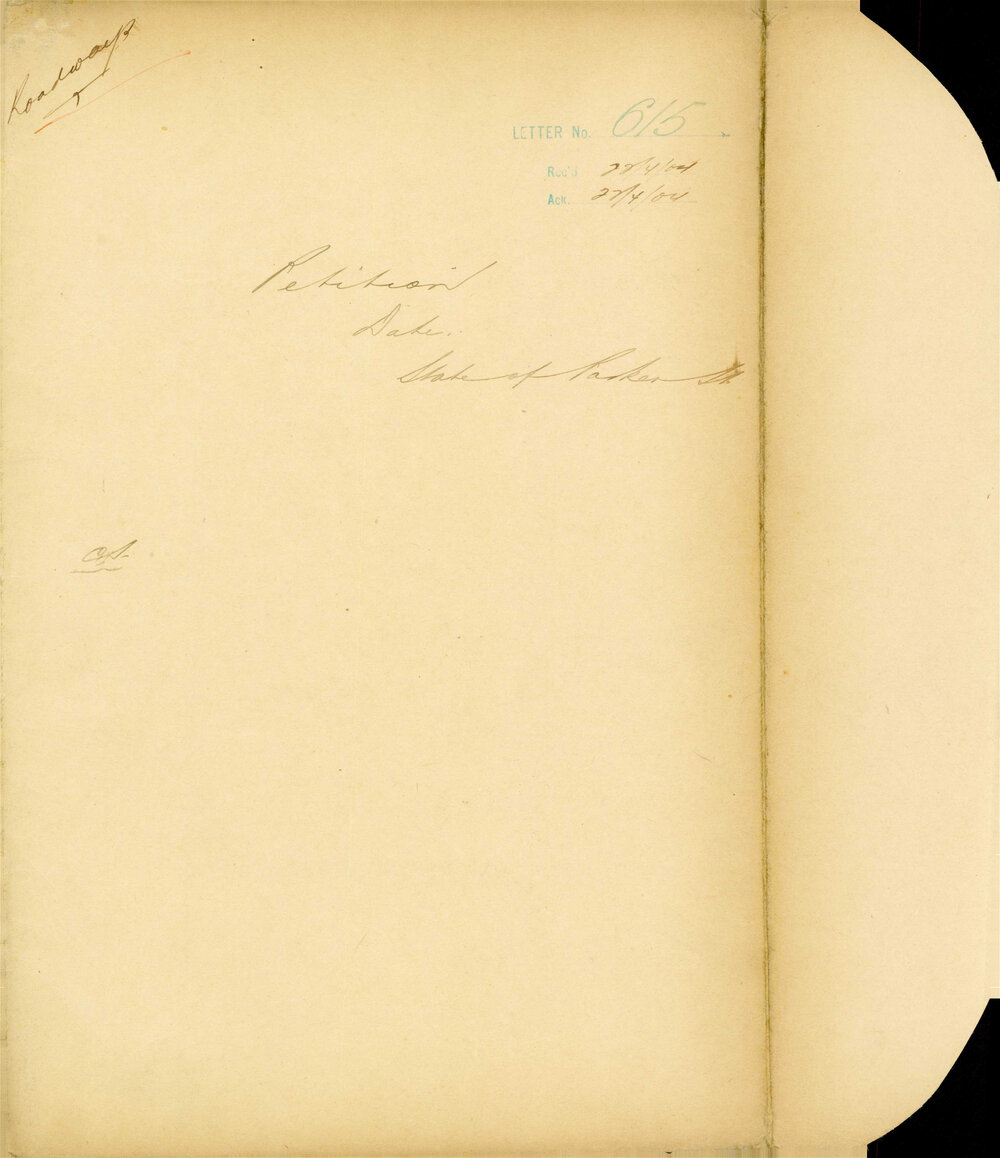 Roadways
LETTER No. 615
Rec'd 22/4/04
Ack. 22/4/04
Petition
Date.
State of Parker St